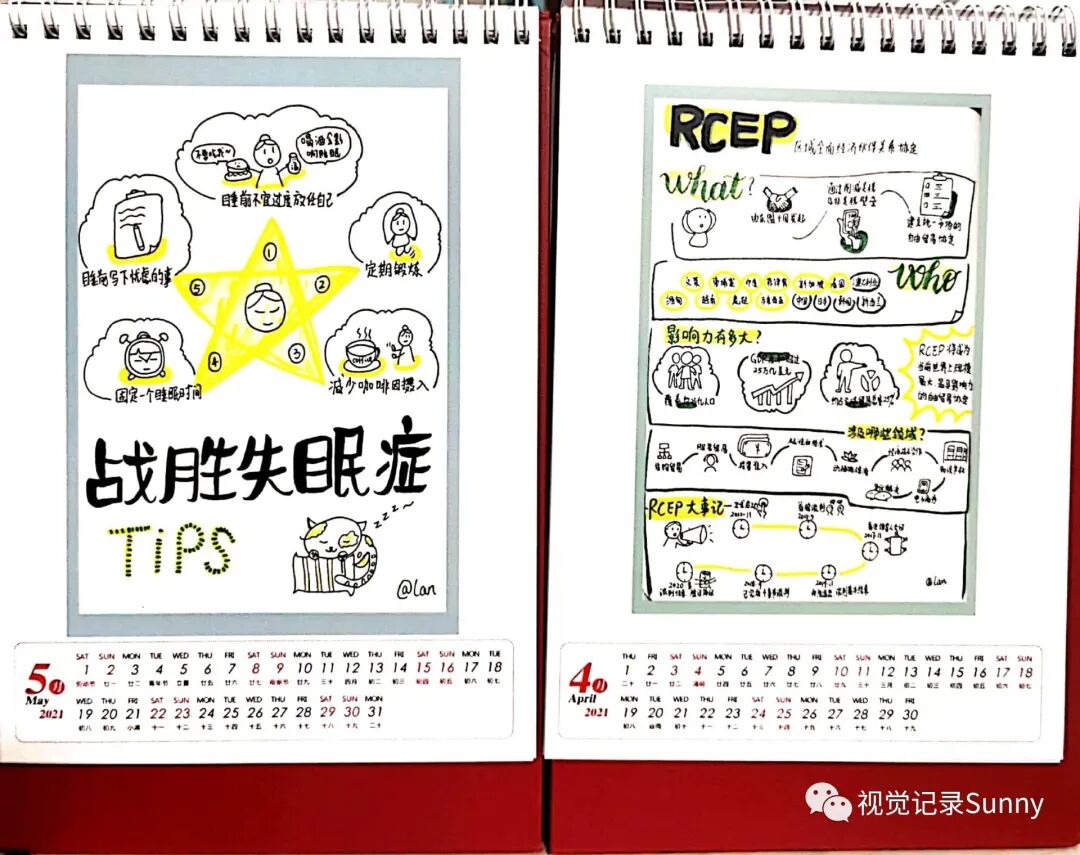 不要吃我~
喝酒会影响睡眠
睡前不宜过度放任自己
睡前写下忧虑的事
定期锻炼
①
②
③
④
⑤
固定一个睡眠时间
coffee
减少咖啡因摄入
战胜失眠症
TiPS
zzz~
@lan
5月
May
2021
SAT SUN MON TUE WED THU FRI SAT SUN MON TUE WED THU FRI SAT SUN MON TUE
1 2 3 4 5 6 7 8 9 10 11 12 13 14 15 16 17 18
劳动节 廿一 廿二 青年节 立夏 廿五 廿六 廿七 母亲节 廿九 三十 四月 初二 初三 初四 初五 初六 初七
WED THU FRI SAT SUN MON TUE WED THU FRI SAT SUN MON
19 20 21 22 23 24 25 26 27 28 29 30 31
初八 初九 小满 十一 十二 十三 十四 十五 十六 十七 十八 十九 二十
RCEP
区域全面经济伙伴关系协定
What?
由东盟十国发起
通过削减关税及非关税壁垒
建立统一市场的自由贸易协定
Who
文莱 柬埔寨 印尼 菲律宾 新加坡 泰国 澳大利亚
缅甸 越南 老挝 马来西亚 中国 日本 韩国 新西兰
影响力有多大?
25万亿美元
RCEP 将成为
当前世界上规模
最大、最具影响力
的自由贸易协定
涉及哪些领域?
RCEP 大事记
2012.11
@lan
4月
April
2021
THU FRI SAT SUN MON TUE WED THU FRI SAT SUN MON TUE WED THU FRI SAT SUN
1 2 3 4 5 6 7 8 9 10 11 12 13 14 15 16 17 18
二十 廿一 廿二 清明 廿四 廿五 廿六 廿七 廿八 廿九 三十 三月 初二 初三 初四 初五 初六 初七
MON TUE WED THU FRI SAT SUN MON TUE WED THU FRI
19 20 21 22 23 24 25 26 27 28 29 30
初八 谷雨 初十 十一 十二 十三 十四 十五 十六 十七 十八 十九
视觉记录Sunny